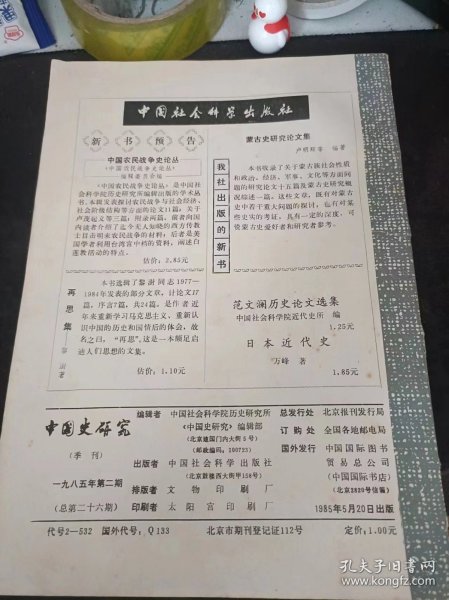 中国社会科学出版社
新书预告
中国农民战争史论丛
《中国农民战争史论丛》
编辑委员会编
《中国农民战争史论丛》是中国社
会科学院历史研究所编辑出版的学术丛
书。本辑发表探讨农民战争与社会经济、
社会阶级结构等方面的论文11篇;关于
卢茂起义等三篇;附录两篇。前者向国
内读者介绍了迄今无人知晓的西方传教
士目击明末农民战争的材料;后者是美
国学者利用台湾宫中档的资料,阐述白
莲教活动的特点。
估价:2.85元
再思集
黎澍著
本书选辑了黎澍同志1977—
1984年发表的部分文章,计论文17
篇,序言7篇,共24篇,是作者近
年来重新学习马克思主义,重新认
识中国的历史和国情后的体会,故
名之曰,“再思”,这是一本颇足启
迪人们思想的文集。
估价:1.10元
我社出版的新书
蒙古史研究论文集
卢明辉等 编著
本书收录了关于蒙古族社会性质
和政治、经济、军事、文化等方面问
题的研究论文十五篇及蒙古史研究概
况综述一篇。这些文章,既有对蒙古
史中若干重大问题的探讨,也有对某
些史实的考证,具有一定的深度,可
供蒙古史爱好者和研究者参考。
范文澜历史论文选集
中国社会科学院近代史所 编
1.25元
日本近代史
万峰 著
1.85元
中国史研究
(季刊)
一九八五年第二期
(总第二十六期)
编辑者 中国社会科学院历史研究所
《中国史研究》编辑部
(北京建国门内大街5号)
(邮政编码:100723)
出版者 中国社会科学出版社
(北京鼓楼西大街甲158号)
排版者 文物印刷厂
印刷者 太阳宫印刷厂
总发行处 北京报刊发行局
订购处 全国各地邮电局
国外发行 中国国际图书
贸易总公司
(中国国际书店)
(北京2820号信箱)
1985年5月20日出版
代号2-532 国外代号:Q133 北京市期刊登记证112号 定价:1.00元
孔夫子旧书网
www.kongfz.com